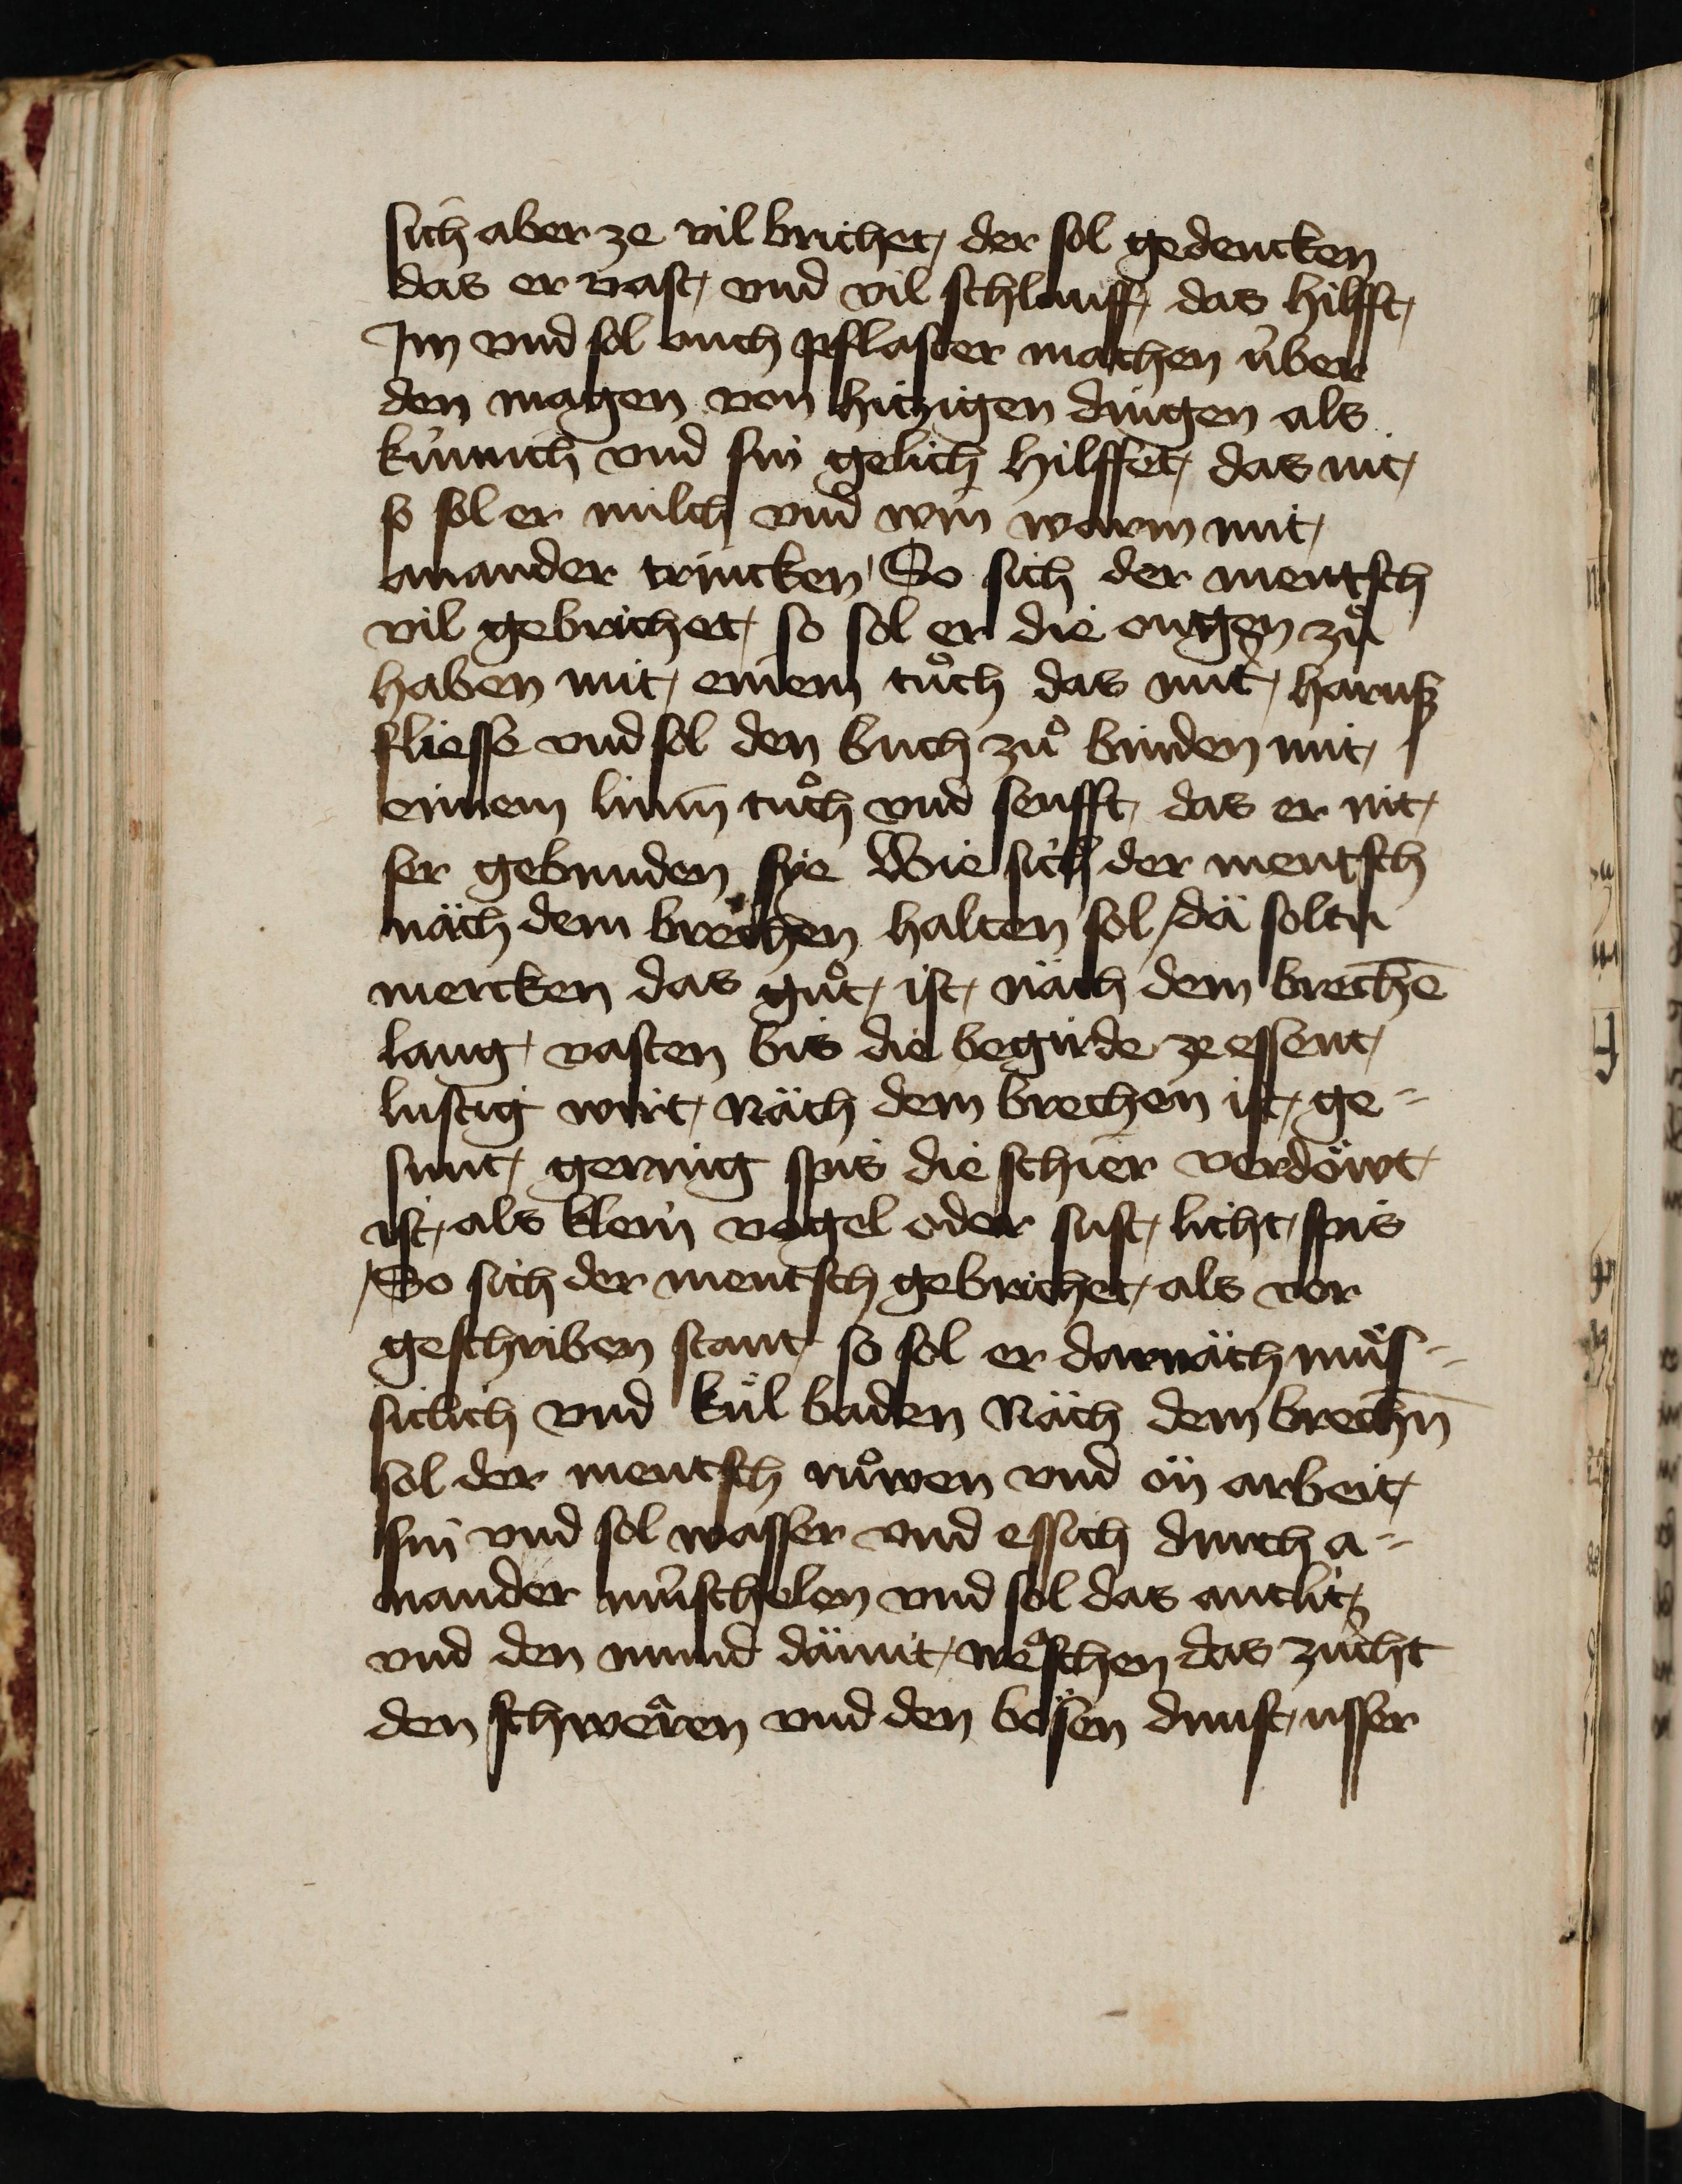 sich aber ze vil brichet der sol gedencken
das er vast vnd vil schlauff das hilfft
Im vnd sol ouch pflaster machen über
den magen von hitzigen dingen als
kúmich vnd sin gelich hilffet das nit
so sol er milch vnd win warm mit
anander trincken So sich der mentsch
vil gebrichet so sol er die ougen zů
haben mit einem tůch das nüt harusz
fliesse vnd sol den buch zů binden mit
einem linin tůch vnd senfft das er nit
ser gebunden sye Wie sich der mentsch
näch dem brechen halten sol dä soltu
mercken das gůt ist näch dem brechē
lang vasten bis die begirde ze essent
lustig wirt Näch dem brechen ist ge-
sunt gering spis die schier verdöwt
ist als klein vogel oder sust licht spis
So sich der mentsch gebrichet als vor
geschriben stant so sol er darnäch müs-
siclich vnd kül baden Näch dem brechn̄
sol der mentsch růwen vnd ön arbeit
sin vnd sol wasser vnd essich durch a-
nander múschelen vnd sol das antlit
vnd den mund dämit weschen das zücht
den schweren vnd den bösen dunst usser